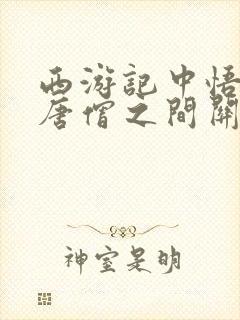 西游记中悟
唐僧之間關
神室是明